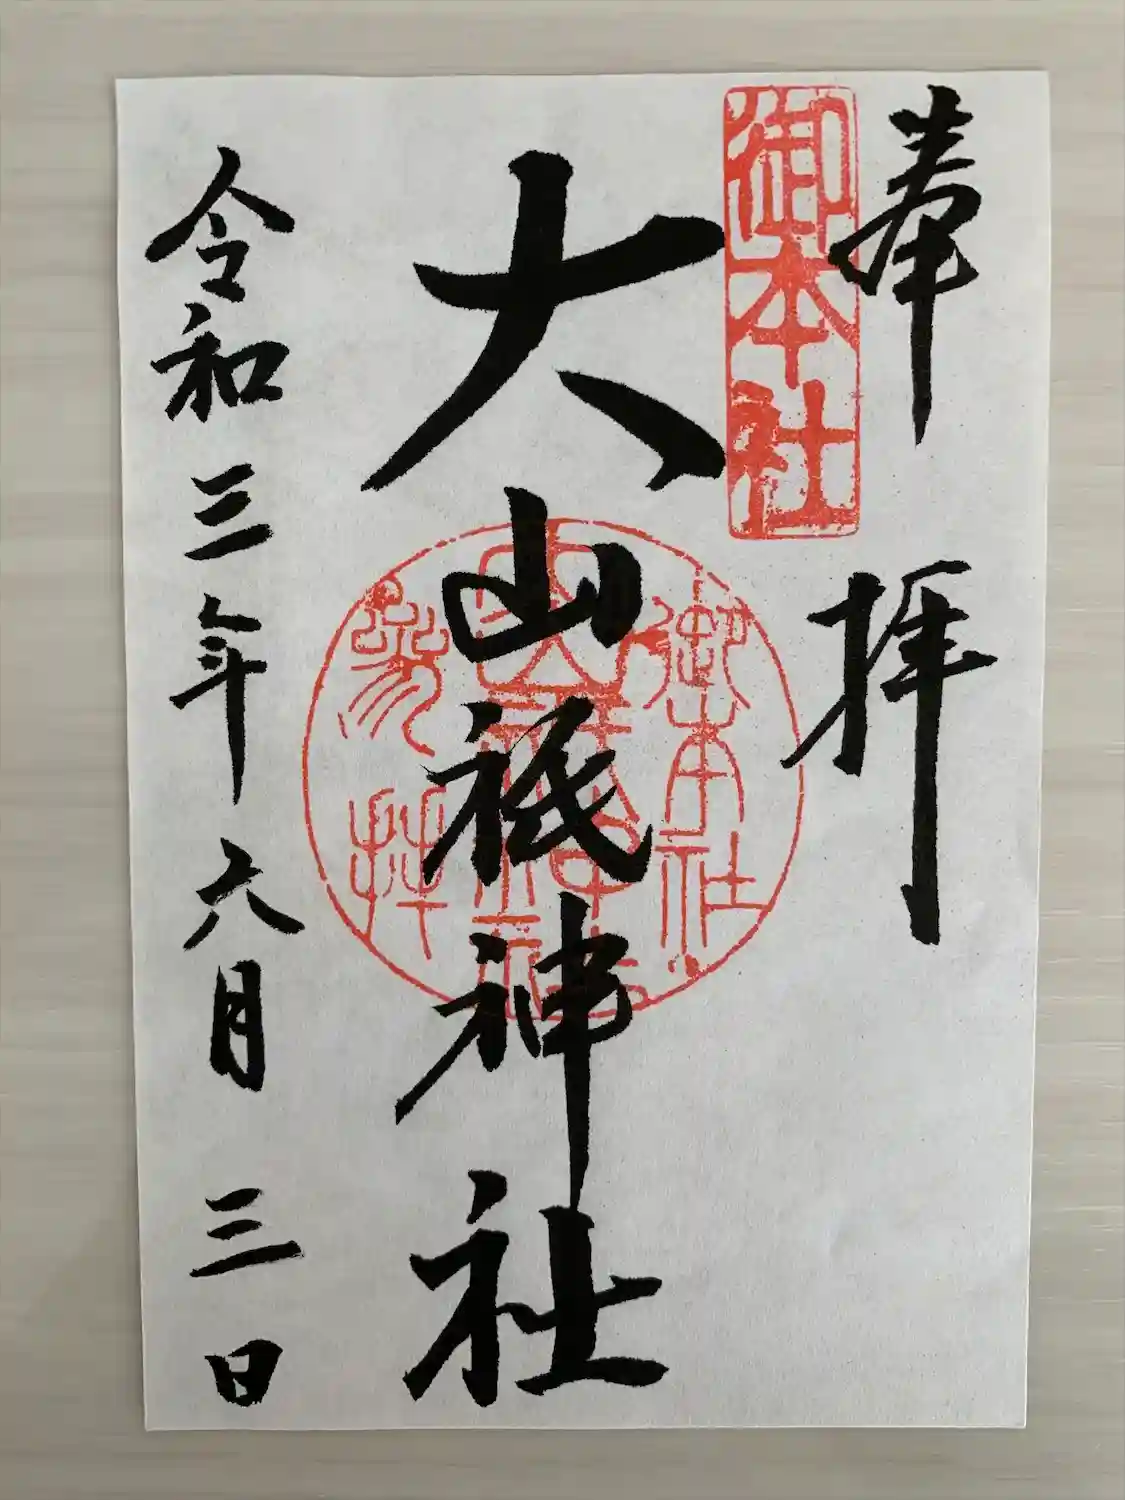 奉拝
御本社
大山祇神社
御本社
大山祇神社
参拝
令和三年六月三日